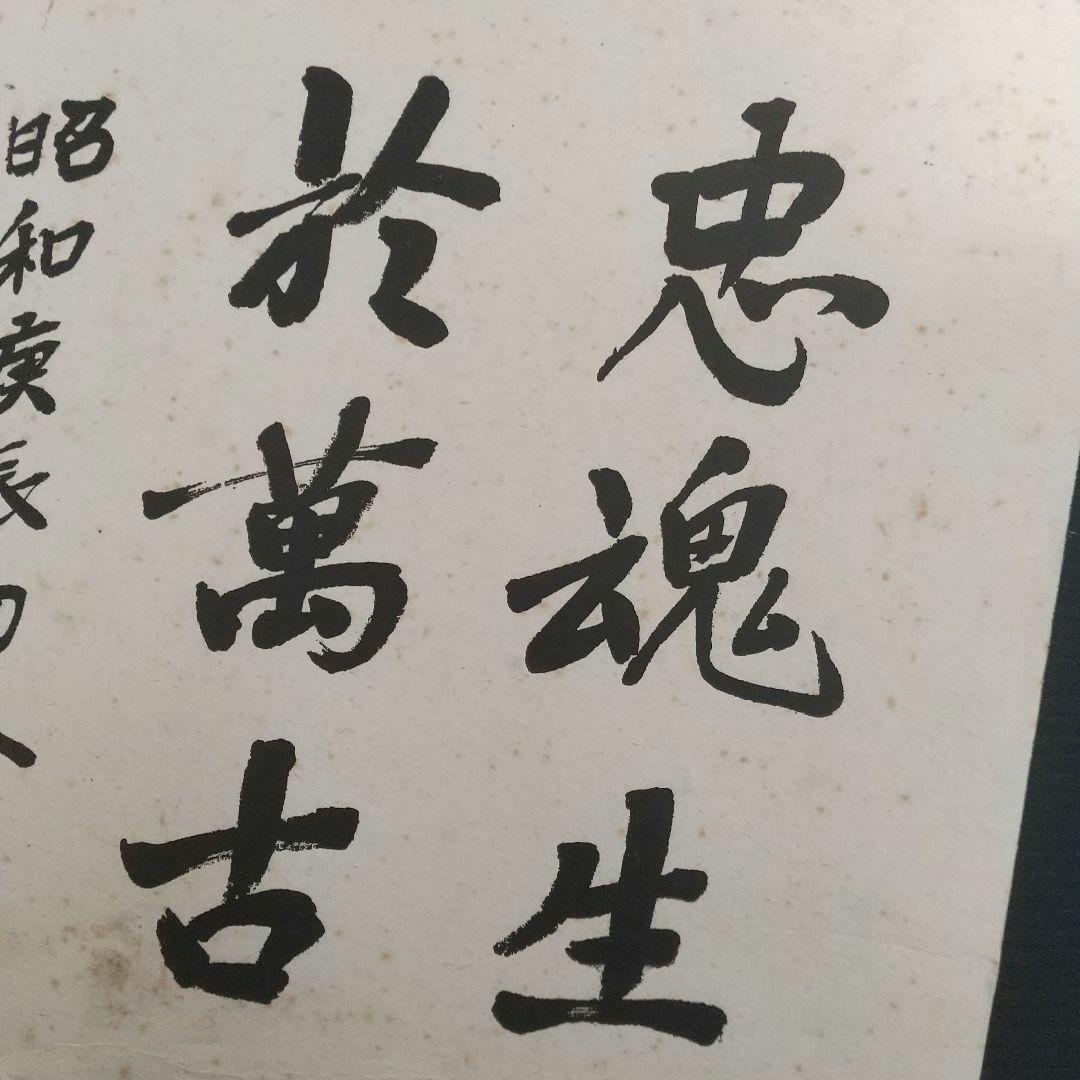 忠魂生
於萬古
昭和庚辰初